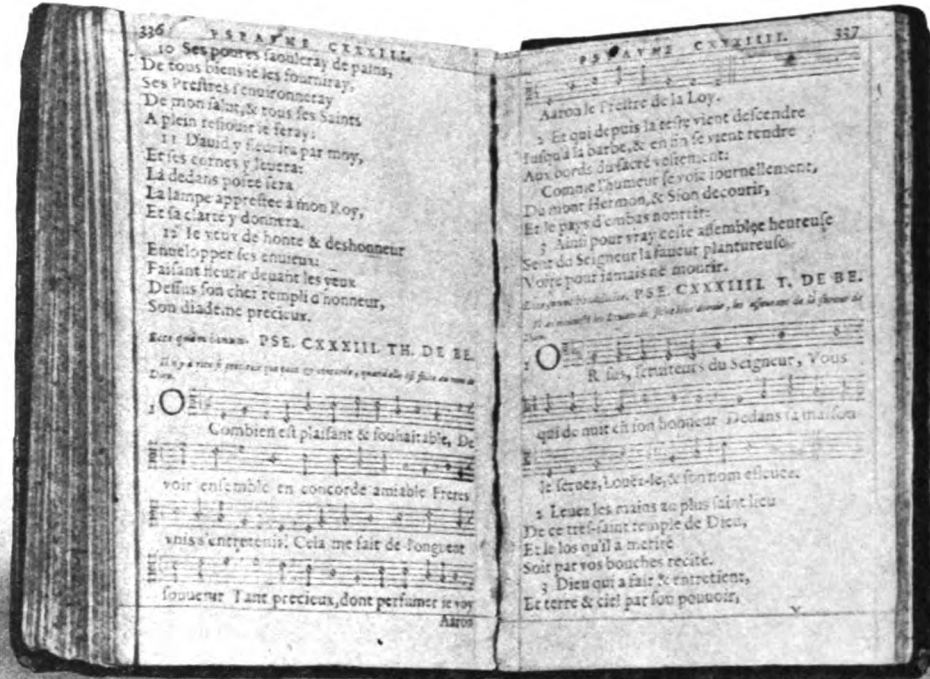 336 PSEAVME CXXXIII.
10 Ses poures saouleray de pains,
De tous biens ie les fourniray,
Ses Prestres i'enuironneray
De mon salut, & tous ses Saints
A plein resiouir ie feray:
11 Dauid y fleurira par moy,
Et ses cornes y leuera:
Là dedans posee sera
La lampe apprestee à mon Roy,
Et sa clarté y donnera.
12 Ie veux de honte & deshonneur
Enuelopper ses enuieux:
Faisant fleurir deuant les yeux
Dessus son chef rempli d'honneur,
Son diademe precieux.
Ecce quàm bonum. PSE. CXXXIII. TH. DE BE.
Il n'y a rien si precieux que
Dieu.
1 O
Combien est plaisant & souhaitable, De
voir ensemble en concorde amiable Freres
vnis s'entretenir! Cela me fait de l'onguent
souuenir Tant precieux, dont perfumer ie voy
Aaron
PSEAVME CXXXIIII. 337
Aaron le Prestre de la Loy.
2 Et qui depuis la teste vient descendre
Iusqu'à la barbe, & en fin se vient rendre
Aux bords du sacré vestement:
Comme l'humeur se voit iournellement,
Du mont Hermon, & Sion decourir,
Et le pays d'embas nourrir:
3 Ainsi pour vray ceste assemblee heureuse
Sent du Seigneur la faueur plantureuse
Voire pour iamais ne mourir.
Ecce nunc benedicite. PSE. CXXXIIII. T. DE BE.
Dieu.
1 O
R sus, seruiteurs du Seigneur, Vous
qui de nuit en son honneur Dedans sa maison
le seruez, Louez-le, & son nom esleuez.
2 Leuez les mains au plus saint lieu
De ce tres-saint temple de Dieu,
Et le los qu'il a merité
Soit par vos bouches recité.
3 Dieu qui a fait & entretient,
Et terre & ciel par son pouuoir,
Y